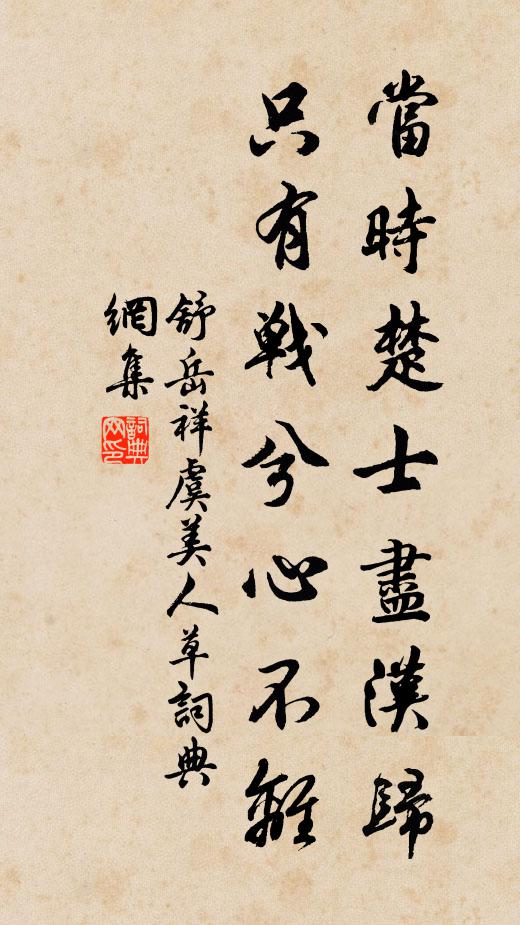 當時楚士盡漢歸
只有戦兮心不離
舒岳祥虞美人草詞典
網集
詞典網印